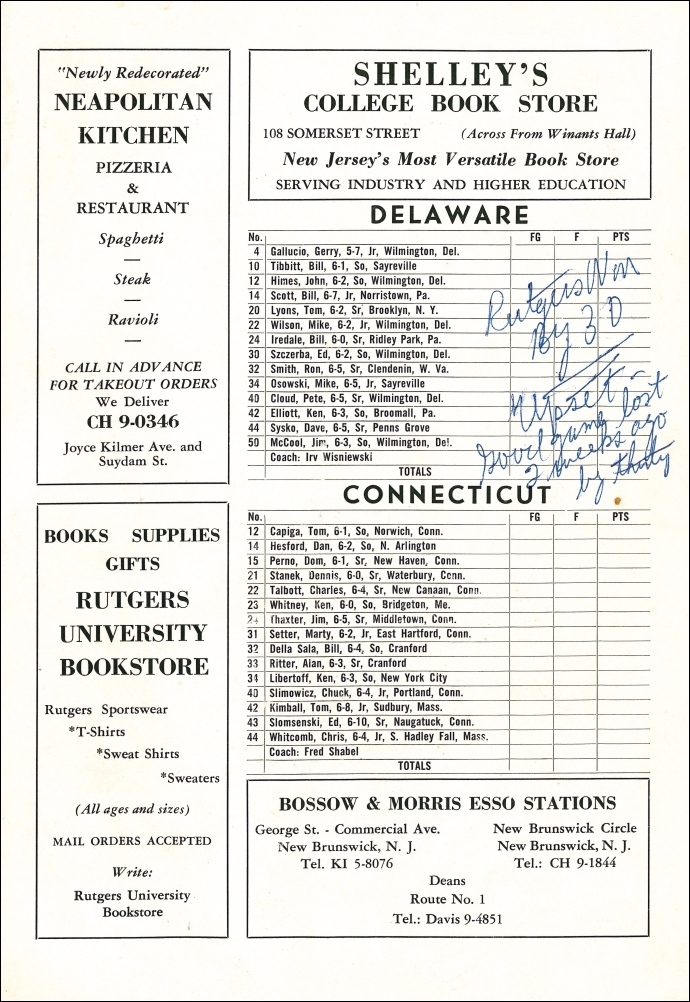 "Newly Redecorated"
NEAPOLITAN
KITCHEN
PIZZERIA
&
RESTAURANT
Spaghetti
—
Steak
—
Ravioli
—
CALL IN ADVANCE
FOR TAKEOUT ORDERS
We Deliver
CH 9-0346
Joyce Kilmer Ave. and
Suydam St.
BOOKS SUPPLIES
GIFTS
RUTGERS
UNIVERSITY
BOOKSTORE
Rutgers Sportswear
*T-Shirts
*Sweat Shirts
*Sweaters
(All ages and sizes)
MAIL ORDERS ACCEPTED
Write:
Rutgers University
Bookstore
SHELLEY'S
COLLEGE BOOK STORE
108 SOMERSET STREET (Across From Winants Hall)
New Jersey's Most Versatile Book Store
SERVING INDUSTRY AND HIGHER EDUCATION
DELAWARE
No. FG F PTS
4 Gallucio, Gerry, 5-7, Jr, Wilmington, Del.
10 Tibbitt, Bill, 6-1, So, Sayreville
12 Himes, John, 6-2, So, Wilmington, Del.
14 Scott, Bill, 6-7, Jr, Norristown, Pa.
20 Lyons, Tom, 6-2, Sr, Brooklyn, N. Y.
22 Wilson, Mike, 6-2, Jr, Wilmington, Del.
24 Iredale, Bill, 6-0, Sr, Ridley Park, Pa.
30 Szczerba, Ed, 6-2, So, Wilmington, Del.
32 Smith, Ron, 6-5, Sr, Clendenin, W. Va.
34 Osowski, Mike, 6-5, Jr, Sayreville
40 Cloud, Pete, 6-5, Sr, Wilmington, Del.
42 Elliott, Ken, 6-3, So, Broomall, Pa.
44 Sysko, Dave, 6-5, Sr, Penns Grove
50 McCool, Jim, 6-3, So, Wilmington, Del.
Coach: Irv Wisniewski
TOTALS
Rutgers Won
By 30
Upset –
good game lost
2 weeks ago
by thirty
CONNECTICUT
No. FG F PTS
12 Capiga, Tom, 6-1, So, Norwich, Conn.
14 Hesford, Dan, 6-2, So, N. Arlington
15 Perno, Dom, 6-1, Sr, New Haven, Conn.
21 Stanek, Dennis, 6-0, Sr, Waterbury, Conn.
22 Talbott, Charles, 6-4, Sr, New Canaan, Conn.
23 Whitney, Ken, 6-0, So, Bridgeton, Me.
24 Thaxter, Jim, 6-5, Sr, Middletown, Conn.
31 Setter, Marty, 6-2, Jr, East Hartford, Conn.
32 Della Sala, Bill, 6-4, So, Cranford
33 Ritter, Alan, 6-3, Sr, Cranford
34 Libertoff, Ken, 6-3, So, New York City
40 Slimowicz, Chuck, 6-4, Jr, Portland, Conn.
42 Kimball, Tom, 6-8, Jr, Sudbury, Mass.
43 Slomsenski, Ed, 6-10, Sr, Naugatuck, Conn.
44 Whitcomb, Chris, 6-4, Jr, S. Hadley Fall, Mass.
Coach: Fred Shabel
TOTALS
BOSSOW & MORRIS ESSO STATIONS
George St. - Commercial Ave. New Brunswick Circle
New Brunswick, N. J. New Brunswick, N. J.
Tel. KI 5-8076 Tel.: CH 9-1844
Deans
Route No. 1
Tel.: Davis 9-4851